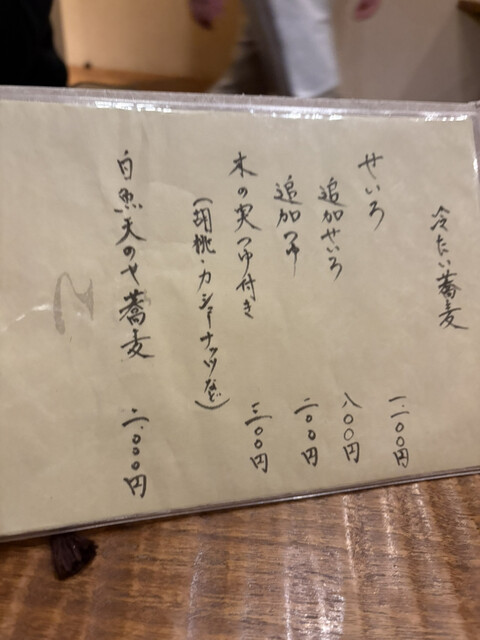 冷たい蕎麦
せいろ 一、一〇〇円
追加せいろ 八〇〇円
追加つゆ 二〇〇円
木の実つゆ付き 三〇〇円
(胡桃・カシューナッツなど)
白魚天のせ蕎麦 二、〇〇〇円